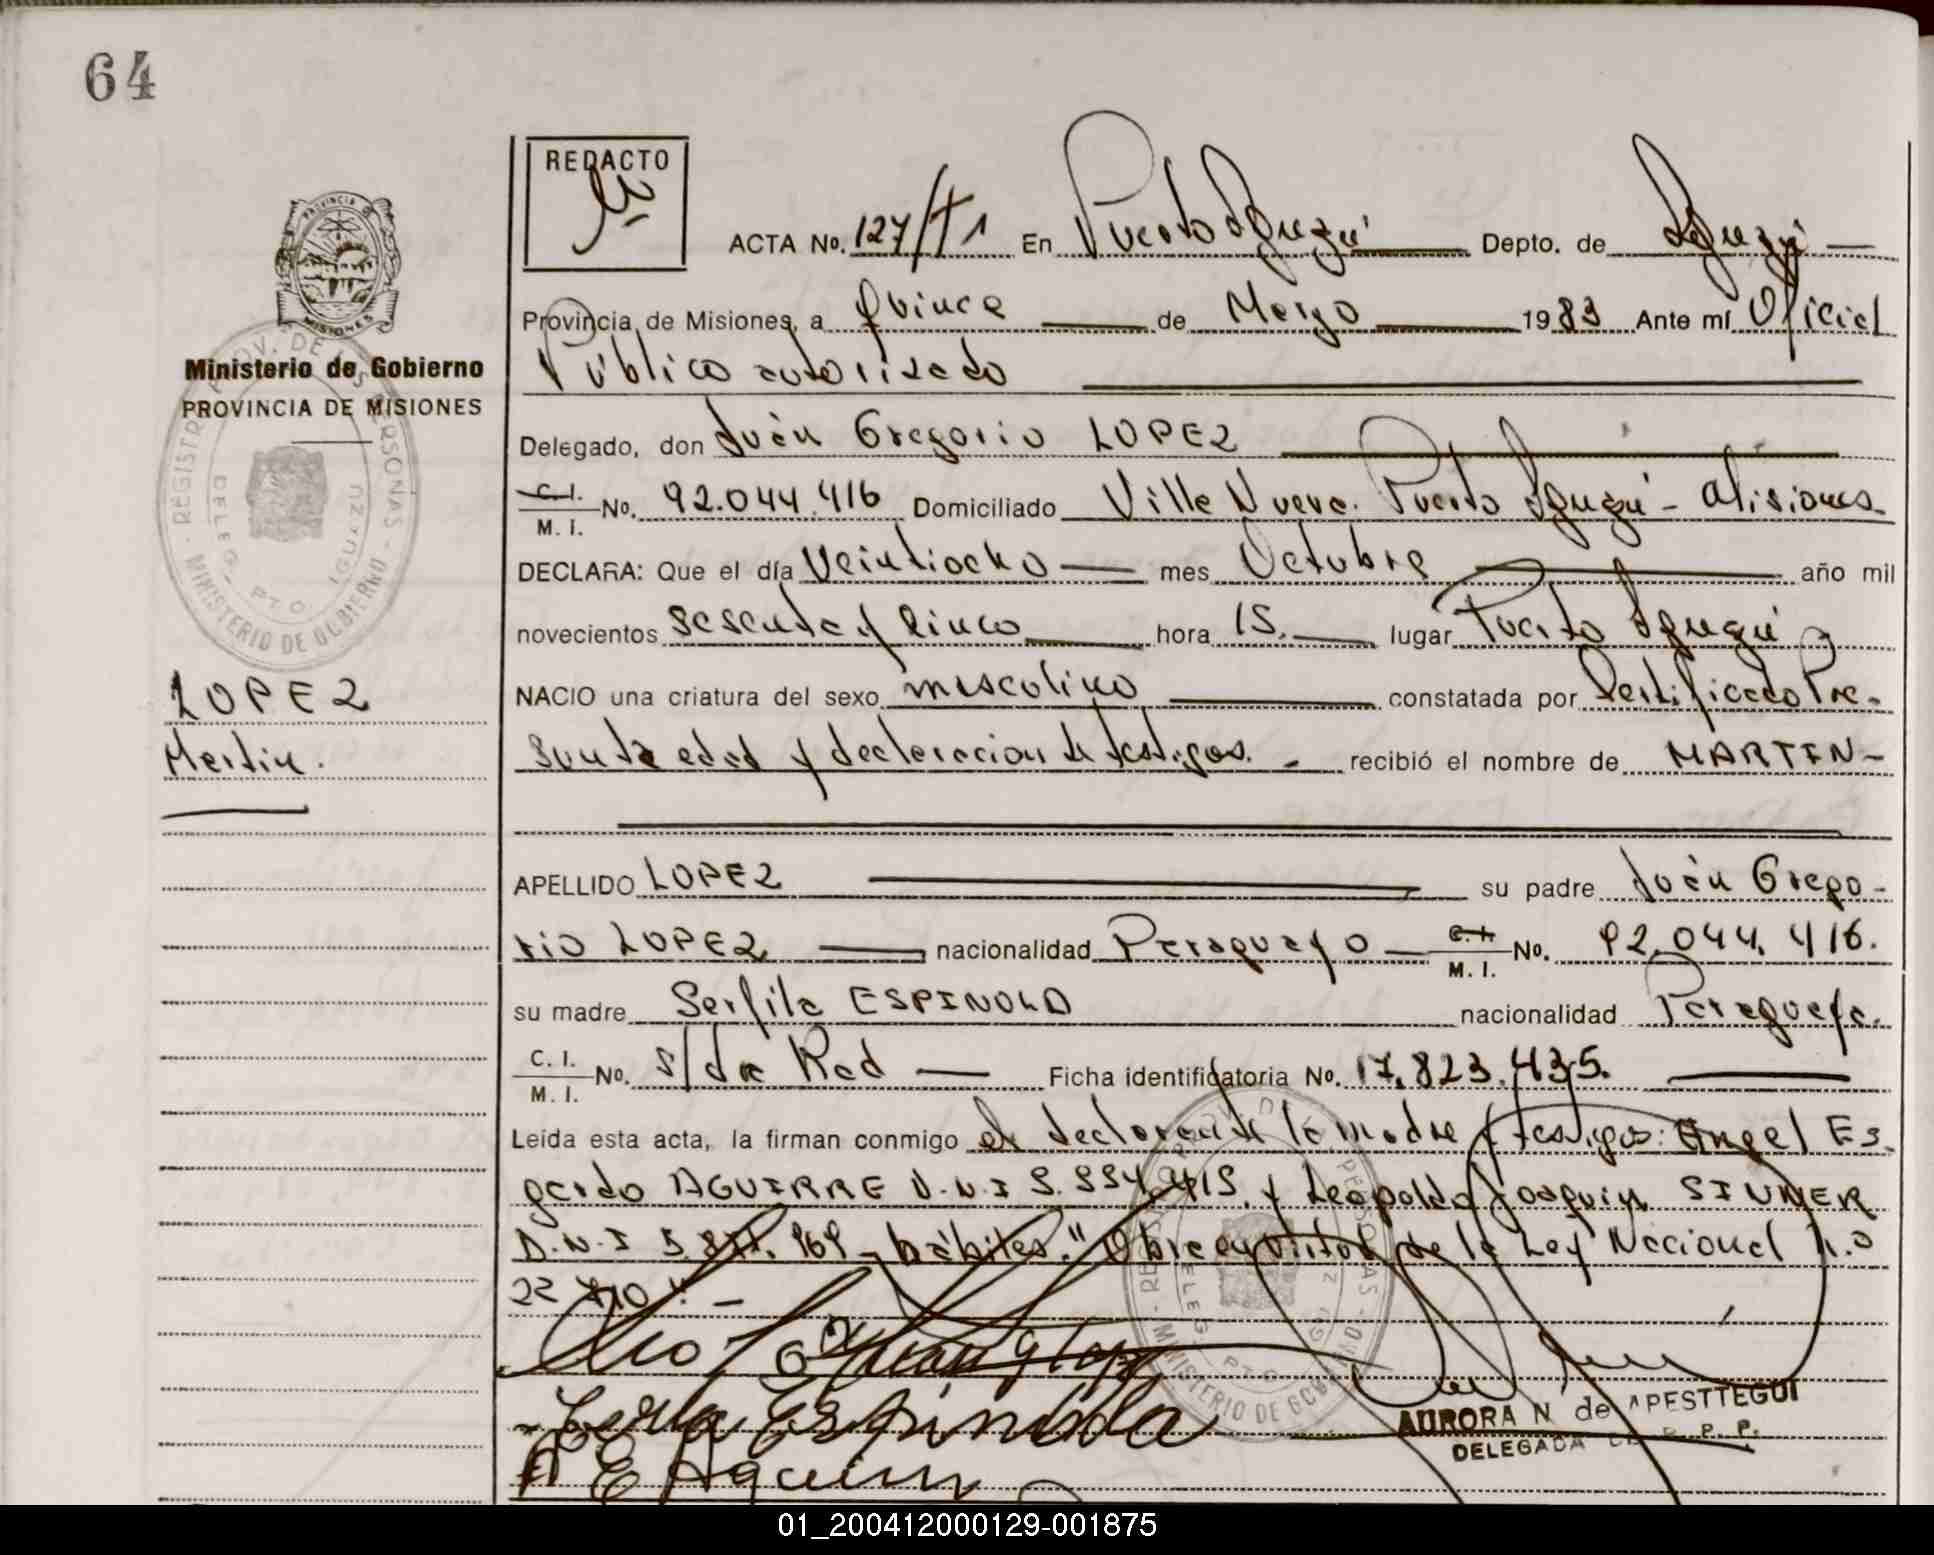 64
REDACTO
ACTA No. 127/T1 En Puerto Iguazú Depto. de Iguazú
Provincia de Misiones, a Quince de Marzo 1983 Ante mí Oficial
Público autorizado
Delegado, don Juan Gregorio LOPEZ
C. I. / M. I. No. 92.044.416 Domiciliado Villa Nueva. Puerto Iguazú - Misiones
DECLARA: Que el día Veintiocho mes Octubre año mil
novecientos sesenta y cinco hora 15. lugar Puerto Iguazú
NACIO una criatura del sexo masculino constatada por Certificado Pre-
sunta edad y declaracion de testigos. - recibió el nombre de MARTIN-
APELLIDO LOPEZ su padre Juan Grego-
rio LOPEZ nacionalidad Paraguayo C. I. / M. I. No. 92.044.416.
su madre Serfila ESPINOLA nacionalidad Paraguaya.
C. I. / M. I. No. s/da Rad Ficha identificatoria No. 17.823.435.
Leída esta acta, la firman conmigo el declarante la madre y testigos: Angel Es-
gardo AGUIRRE D.N.I 5. y Leopoldo Joaquin SINNER
D.N.I 5. 969 - hábiles." Obra en virtud de la Ley Nacional n.o
22 410". -
Juan G Lopez
Espinola
A E Aguirre
AURORA N de APESTTEGUI
DELEGADA
Ministerio de Gobierno
PROVINCIA DE MISIONES
PROVINCIA D
MISIONES
REGISTR PROV. DE PERSONAS - MINISTERIO DE GOBIERNO
DELEG. PTO. IGUAZU
LOPEZ
Martin.
REG PROV. D PERSONAS - MINISTERIO DE GOBIERNO
DELEG. PTO. IGUAZU
01_200412000129-001875